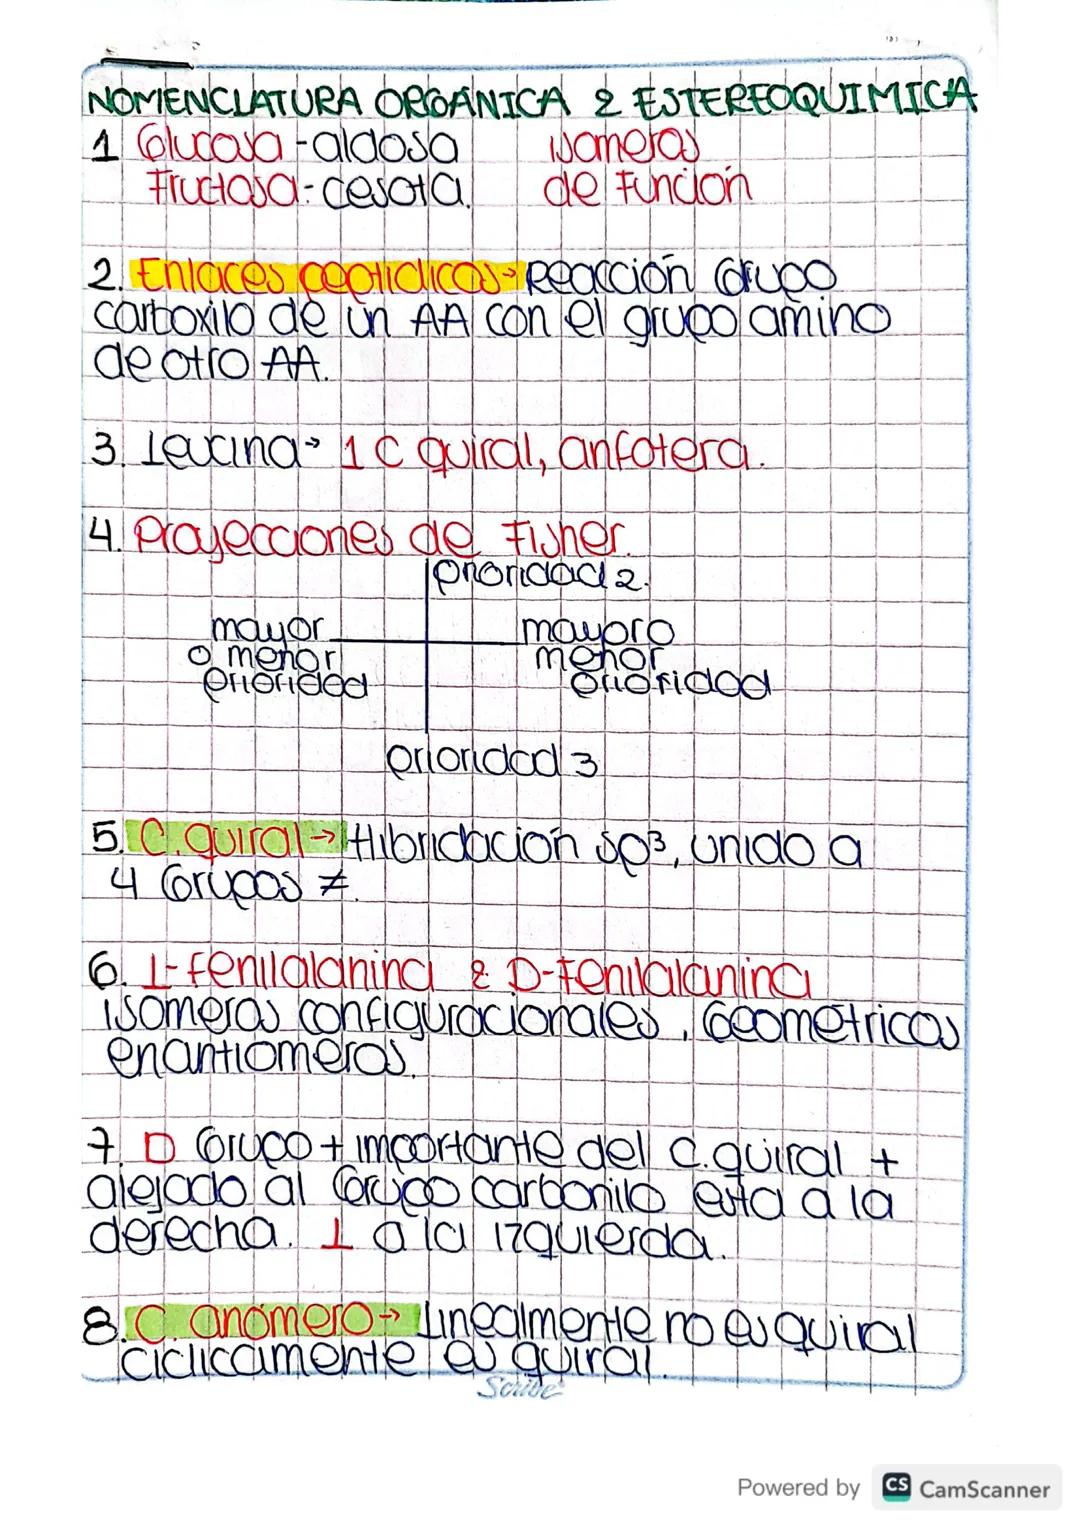 NOMENCLATURA ORGÁNICA & ESTEREOQUIMICA
1 Glucosa - aldosa isomeros
Fructosa - cesota. de Función
2. Enlaces peptidicos→ Reacción Grupo
carboxilo de un AA con el grupo amino
de otro AA.
3. Leucina→ 1 C quiral, anfotera.
4. Proyecciones de Fisher.
prioridad 2.
mayor mayor o
o menor menor
prioridad prioridad
prioridad 3
5. C. quiral → Hibridación sp³, unido a
4 Grupos ≠.
6. L-fenilalanina & D-Fenilalanina
isomeros configuracionales, Geometricos
enantiomeros.
7. D Grupo + importante del C. quiral +
alejado al Grupo carbonilo esta a la
derecha. L a la izquierda.
8. C. anómero→ Linealmente no es quiral
ciclicamente es quiral.
Scribe
Powered by CS CamScanner